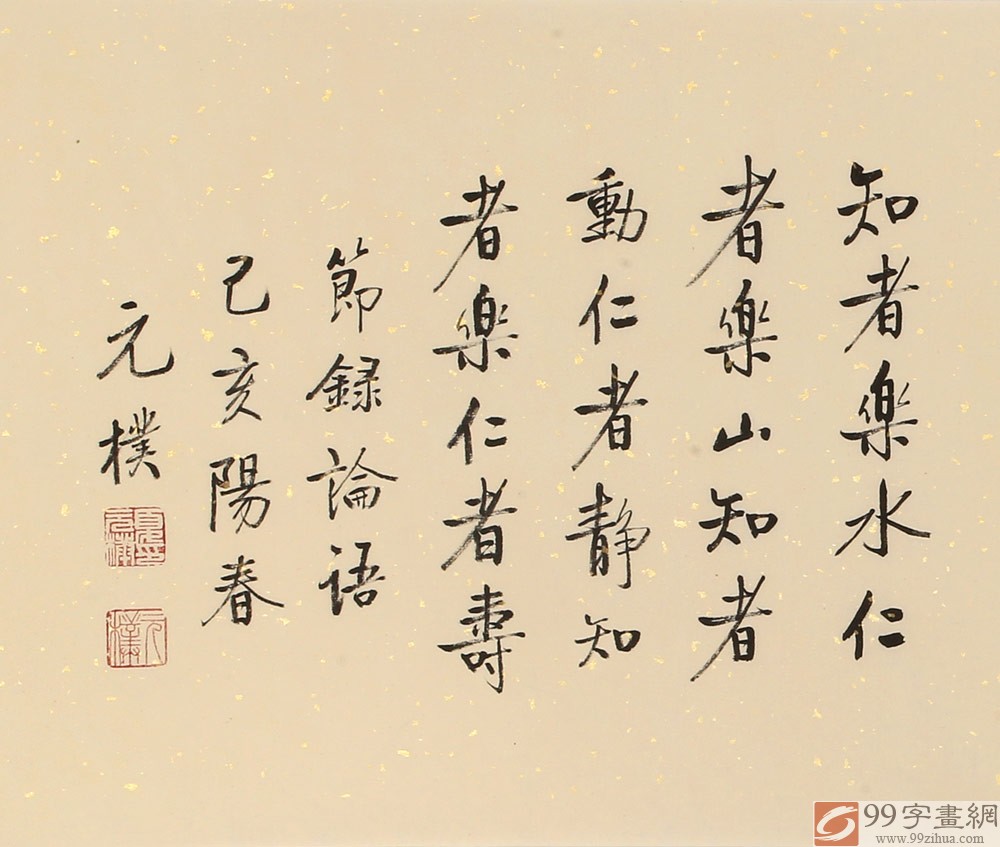 知者樂水仁
者樂山知者
動仁者靜知
者樂仁者壽
節録論语
己亥陽春
元樸
元樸
99字畫網
www.99zihua.com